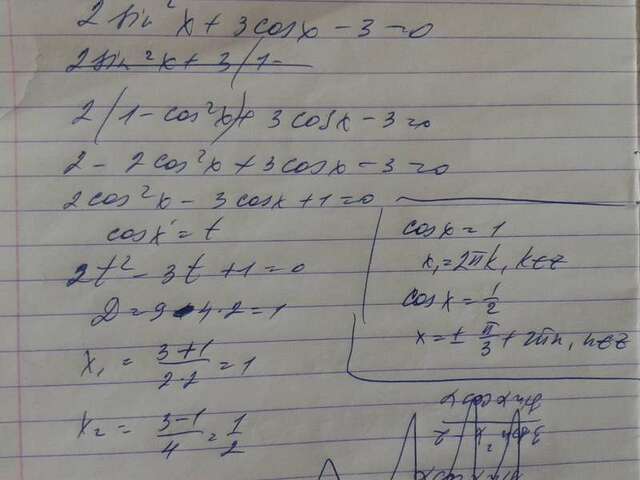 2 sin² x + 3 cos x - 3 = 0
2 sin² x + 3(1-
2(1 - cos² x) + 3 cos x - 3 = 0
2 - 2 cos² x + 3 cos x - 3 = 0
2 cos² x - 3 cos x + 1 = 0
cos x = t
2t² - 3t + 1 = 0
D = 9 - 4·2 = 1
x₁ = (3+1)/(2·2) = 1
x₂ = (3-1)/4 = 1/2
cos x = 1
x₁ = 2πk, k∈z
cos x = 1/2
x = ± π/3 + 2πn, n∈z